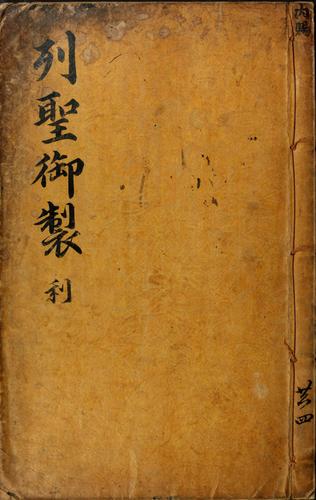 內賜
列聖御製 利
共四